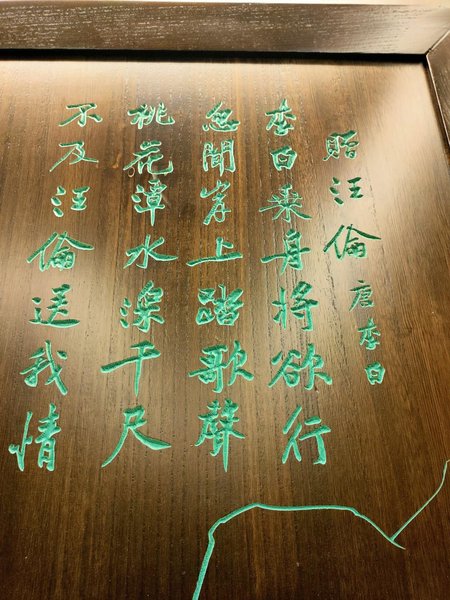 贈汪倫 唐李白
李白乘舟将欲行
忽聞岸上踏歌聲
桃花潭水深千尺
不及汪倫送我情